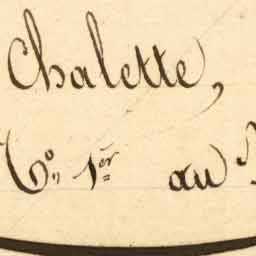 Chalette,
1er au